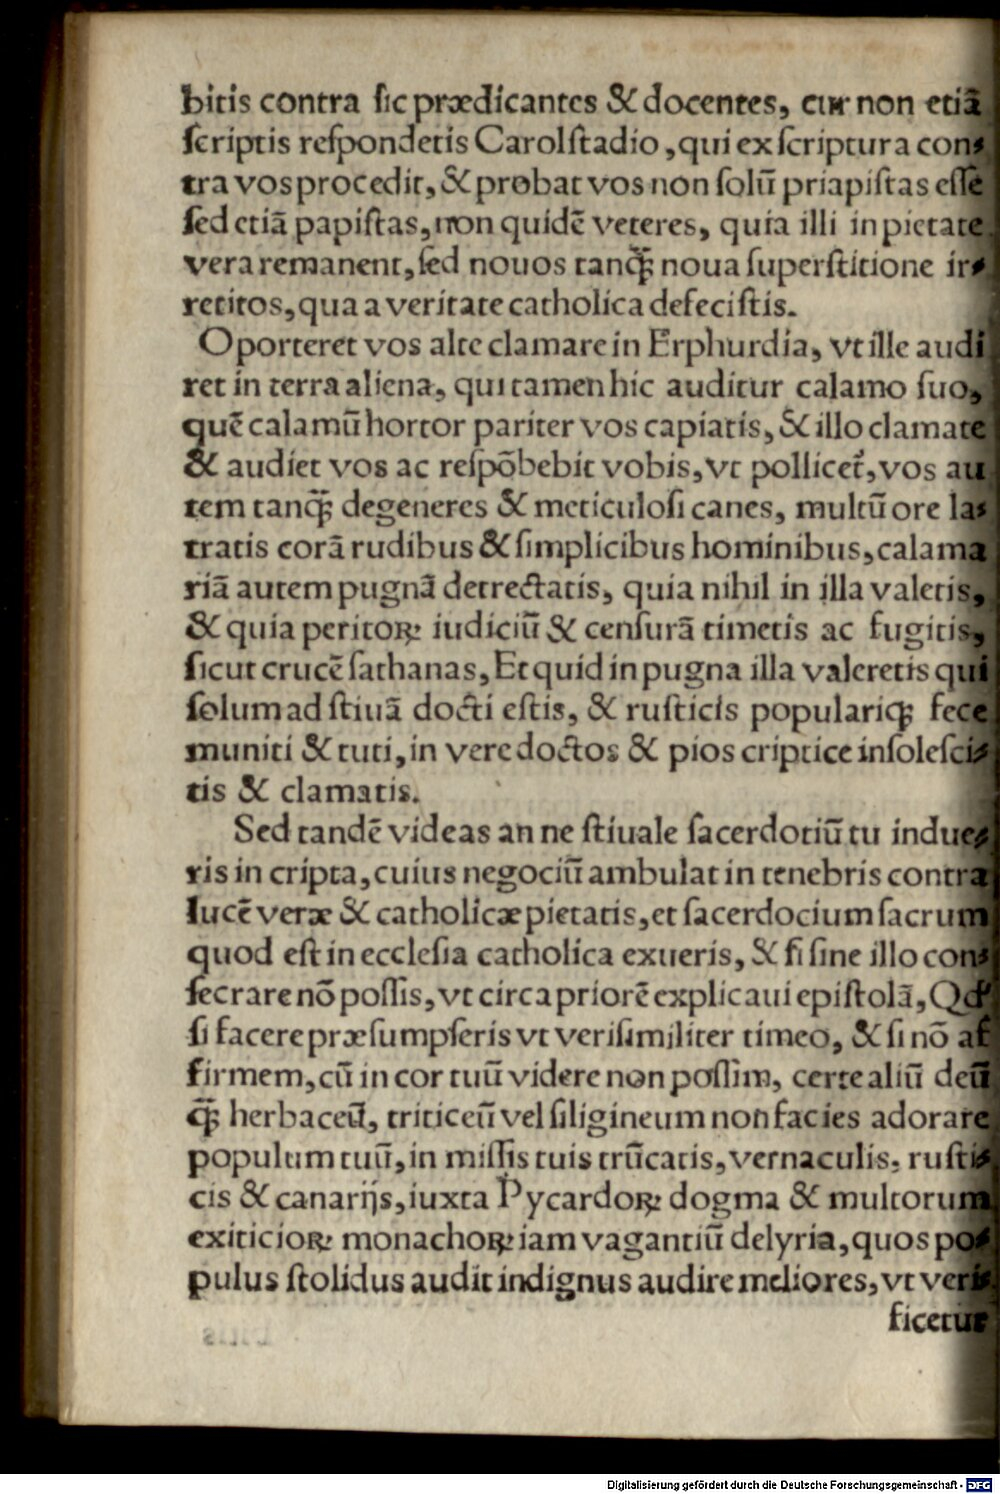 bitis contra ſic prædicantes & docentes, cur non etiā
ſcriptis reſpondetis Carolſtadio, qui ex ſcriptura con⸗
tra vos procedit, & probat vos non ſolū priapiſtas eſſe
ſed etiā papiſtas, non quidē veteres, quia illi in pietate
vera remanent, ſed nouos tanq̄ȝ noua ſuperſtitione ir⸗
retitos, qua a veritate catholica defeciſtis.
Oporteret vos alte clamare in Erphurdia, vt ille audi
ret in terra aliena, qui tamen hic auditur calamo ſuo,
quē calamū hortor pariter vos capiatis, & illo clamate
& audiet vos ac reſpōbebit vobis, vt pollicet᷑, vos au
tem tanq̄ȝ degeneres & meticuloſi canes, multū ore la⸗
tratis corā rudibus & ſimplicibus hominibus, calama
riā autem pugnā detrectatis, quia nihil in illa valetis,
& quia peritoꝝ iudiciū & cenſurā timetis ac fugitis,
ſicut crucē ſathanas, Et quid in pugna illa valeretis qui
ſolum ad ſtiuā docti eſtis, & ruſticis populariqȝ fece
muniti & tuti, in vere doctos & pios criptice inſoleſci⸗
tis & clamatis.
Sed tandē videas an ne ſtiuale ſacerdotiū tu indue⸗
ris in cripta, cuius negociū ambulat in tenebris contra
lucē veræ & catholicæ pietatis, et ſacerdocium ſacrum
quod eſt in eccleſia catholica exueris, & ſi ſine illo con⸗
ſecrare nō poſſis, vt circa priorē explicaui epiſtolā, Qd'
ſi facere præſumpſeris vt veriſimiliter timeo, & ſi nō af
firmem, cū in cor tuū videre non poſſim, certe aliū deū
q̄ȝ herbaceū, triticeū vel ſiligineum non facies adorare
populum tuū, in miſſis tuis trūcatis, vernaculis, ruſti⸗
cis & canarijs, iuxta Pycardoꝝ dogma & multorum
exiticioꝝ monachoꝝ iam vagantiū delyria, quos po⸗
pulus ſtolidus audit indignus audire meliores, vt veri⸗
ficetur
Digitalisierung gefördert durch die Deutsche Forschungsgemeinschaft - DFG